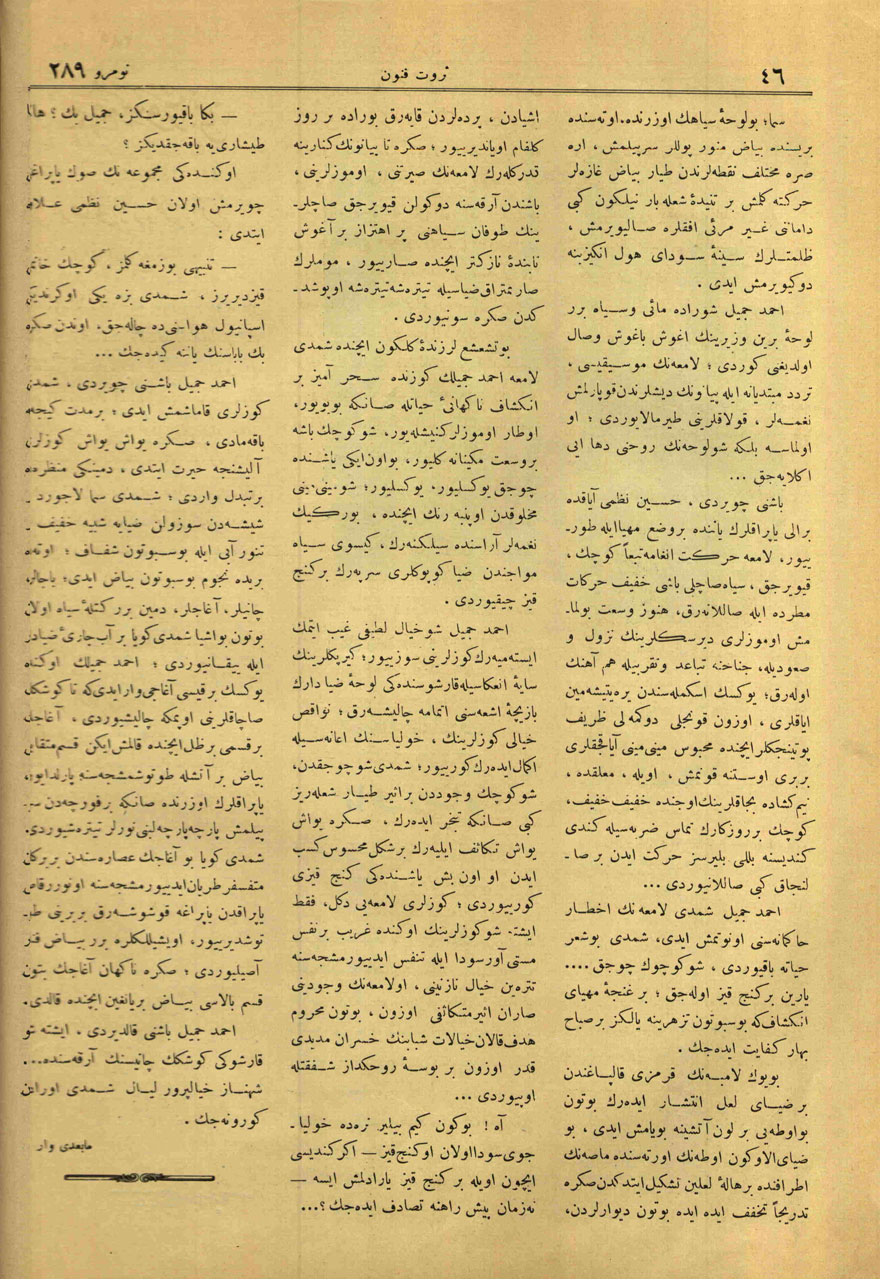 ٤٦
ثروت فنون
نومرو ٢٨٩
سما؛ بولوحهٔ سیاهك اوزرنده. اوته‌سنده
بریسنده بیاض منور پوللر سرپیلمش، اره
صره مختلف نقطه‌لرندن طیار بیاض غازه‌لر
حرکته کلمش بر تنیدهٔ شعله‌بار نیلکون کبی
دامانی غیر مرئی افقلره صالیویرمش،
ظلمتلرك سینهٔ سودای هول انکیزینه
دوکیویرمش ایدی.
احمد جمیل شوراده مائی وسیاه برر
لوحهٔ برین وزیرینك اغوش باغوش وصال
اولدیغنی کوردی؛ لامعه‌نك موسیقیسی،
تردد مبتدیانه ایله پیانونك دیشلرندن قوپارلمش
نغمه‌لر، قولاقلرینی طیرمالایوردی؛ او
اولماسه بلکه شولوحه‌نك روحنی دها ایی
اکلایه‌جق ...
باشنی چویردی، حسین نظمی آیاقده
برالی یاپراقلرك یاننده بروضع مهیا ایله طور-
ییور، لامعه حرکت انغامه تبعاً کوچك،
قیویرجق، سیاه صاچلی باشی خفیف حرکات
مطرده ایله صاللانه‌رق، هنوز وسعت بولما-
مش اوموزلری دیرسکلرینك نزول و
صعودیله، جناحنه تباعد وتقربیله هم آهنك
اوله‌رق؛ یوکسك اسکمله‌سندن یره یتیشه‌مین
ایاقلری، اوزون قونجلی دوکمه لی ظریف
پوتینجکلر ایچنده محبوس مینی مینی آیاقجقلری
بربری اوستنه قونمش، اویله، معلقده،
نیم کشاده بجاقلرینك اوجنده خفیف خفیف،
کوچك برروزکارك تماس ضربه‌سیله کندی
کندیسنه بللی بلیرسز حرکت ایدن بر صا-
لنجاق کبی صاللانیوردی ...
احمد جمیل شمدی لامعه‌نك اخطار
حاکمانه‌سنی اونوتمش ایدی، شمدی بوشعر
حیاته باقیوردی، شو کوچوك چوجق ....
یارین برکنج قیز اوله‌جق؛ بر غنجهٔ مهیای
انکشاف که بوسبوتون تزهرینه یالکز بر صباح
بهار کفایت ایده‌جك.
بویوك لامبه‌نك قرمزی قالپاغندن
بر ضیای لعل انتشار ایده‌رك بوتون
بواوطه‌یی بر لون آتشینه بویامش ایدی، بو
ضیای آل اوکون اوطه‌نك اورته‌سنده ماصه‌نك
اطرافنده برهالهٔ لعلین تشکیل ایتدکدن صکره
تدریجاً تخفف ایده ایده بوتون دیوارلردن،
اشیادن، پرده‌لردن قایه‌رق بوراده بر روز
کلفام اویاندیرییور؛ صکره تا پیانونك کنارینه
قدر کله‌رك لامعه‌نك صیرتنی، اوموزلرینی،
باشندن آرقه‌سنه دوکولن قیویرجق صاچلر-
ینك طوفان سیاهنی پر اهتزاز بر آغوش
تابندهٔ نازکتر ایچنده صارییور، موملرك
صارمتراق ضیاسیله تیتره‌شه تیتره‌شه اوپوشد-
کدن صکره سونیوردی.
بو تشعشع لرزندهٔ کلکون ایچنده شمدی
لامعه احمد جمیلك کوزنده سحر آمیز بر
انکشاف ناکهانی حیاتله صانکه بویویور،
اوطار اوموزلر کنیشله‌یور، شو کوچك باشه
بروسعت مکینانه کلیور، بواون ایکی یاشنده
چوجق یوکسلیور، یوکسلیور؛ شو مینی مینی
مخلوقدن اوپنبه رنك ایچنده، بورکیك
نغمه‌لر آراسنده سیلکنه‌رك، کیسوی سیاه
مواجندن ضیا کوپوکلری سرپه‌رك برکنج
قیز چیقیوردی.
احمد جمیل شو خیال لطیفی غیب ایتمك
ایسته‌میه‌رك کوزلرینی سوزییور؛ کیرپکلرینك
سایهٔ انعکاسیله قارشوسنده کی لوحهٔ ضیا دارك
بازیچهٔ اشعه‌سنی اتمامه چالیشه‌رق؛ نواقص
خیالی کوزلرینك، خولیاسنك اعانه‌سیله
اکمال ایده‌رك کورییور؛ شمدی شو چوجقدن،
شو کوچك وجوددن براثیر طیار شعله‌ریز
کبی صانکه تبخر ایده‌رك، صکره یواش
یواش تکاثف ایلیه‌رك برشکل محسوس کسب
ایدن او اون بش یاشنده کی کنج قیزی
کورییوردی؛ کوزلری لامعه‌یی دکل، فقط
ایشته شو کوزلرینك اوکنده غریب برنفس
مستی آور سودا ایله تنفس ایدییورمشجه‌سنه
تتره‌ین خیال نازنینی، اولامعه‌نك وجودینی
صاران اثیر متکاثفی اوزون، بوتون محروم
هدف قالان خیالات شبابنك خسران مدیدی
قدر اوزون بر بوسهٔ روحکداز شفقتله
اوپیوردی ...
آه! بوکون کیم بیلیر نره‌ده خولیا-
جوی سودا اولان اوکنج قیز — اکر کندیسی
ایچون اویله بر کنج قیز یارادلمش ایسه —
نه زمان پیش راهنه تصادف ایده‌جك ؟...
— بکا باقیورسنکز، جمیل بك؟ هالا
طیشاری‌یه باقه‌جقدیکز؟
اوکنده کی مجموعه‌نك صوك یاپراغنی
چویرمش اولان حسین نظمی علاوه
ایتدی:
— تنبیهی بوزمغه کلمز، کوچك خانم
قیزدیریرز، شمدی بزه یکی اوکرندیکی
اسپانیول هواسنی ده چاله‌جق. اوندن صکره
بك باباسنك یاننه کیده‌جك ...
احمد جمیل باشنی چویردی، شمدی
کوزلری قاماشمش ایدی؛ برمدت کیجه‌یه
باقه‌مادی، صکره یواش یواش کوزلری
آلیشنجه حیرت ایتدی، دمینکی منظره‌ده
برتبدل واردی؛ شمدی سما لاجورد -
شیشه‌دن سوزولن ضیایه شبیه خفیف -
تنور آبی ایله بوسبوتون شفاف؛ اوته‌ده
بریده نجوم بوسبوتون بیاض ایدی؛ باجالر،
چاتیلر، آغاجلر، دمین برر کتلهٔ سیاه اولان
بوتون بواشیا شمدی کویا بر آب جاریٔ ضیادار
ایله ییقانیوردی؛ احمد جمیلك اوکنده
یوکسك برقیسی آغاجی وار ایدی که تا کوشکك
صاچاقلرینی اوپمکه چالیشیوردی، آغاجك
بر قسمی بر ظل ایچنده قالمش ایکن قسم متقابلی
بیاض بر آتشله طوتوشمشجه‌سنه پارلدایور،
یاپراقلرك اوزرنده صانکه برفورچه‌دن سر-
پیلمش پارچه پارچه لبنی نورلر تیتره‌شیوردی.
شمدی کویا بو آغاجك عصاره‌سندن بربرکان
متفسفر طریان ایدییورمشجه‌سنه اونور رقاص
یاپراقدن یاپراغه قوشوشه‌رق بربرینی طو-
توشدیرییور، اویشیللکلره برر بیاض فنر
آصیلیوردی؛ صکره ناکهان آغاجك بتون
قسم بالاسی بیاض بریانغین ایچنده قالدی.
احمد جمیل باشنی قالدیردی، ایشته شو
قارشوکی کوشکك چاتیسنك آرقه‌سنده ...
شهناز خیالپرور لیال شمدی اورادن
کورونه‌جك.
مابعدی وار